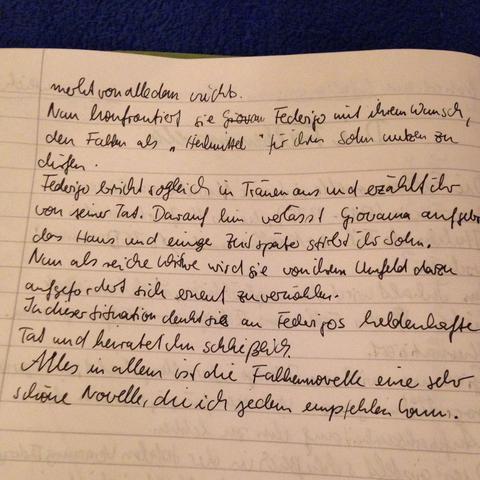 merkt von alledem nichts.
Nun konfrontiert sie Federigo mit ihrem Wunsch,
den Falken als „Heilmittel“ für ihren Sohn nutzen zu
dürfen.
Federigo bricht sogleich in Tränen aus und erzählt ihr
von seiner Tat. Darauf hin verlässt Giovanna aufgelöst
das Haus und einige Zeit später stirbt ihr Sohn.
Nun als reiche Witwe wird sie von ihrem Umfeld dazu
aufgefordert sich erneut zu vermählen.
In dieser Situation denkt sie an Federigos heldenhafte
Tat und heiratet ihn schließlich.
Alles in allem ist die Falkennovelle eine sehr
schöne Novelle, die ich jedem empfehlen kann.